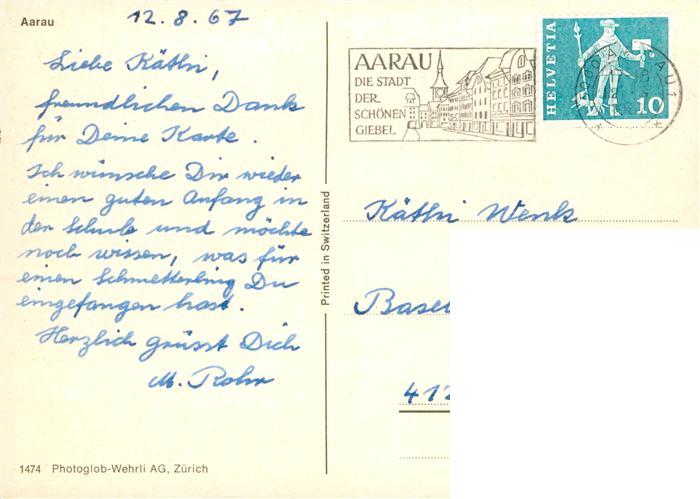 Aarau
12.8.67
Liebe Käthi,
freundlichen Dank
für Deine Karte.
Ich wünsche Dir wieder
einen guten Anfang in
der Schule und möchte
noch wissen, was für
einen Schmetterling Du
eingefangen hast.
Herzlich grüsst Dich
M. Rohr
1474 Photoglob-Wehrli AG, Zürich
Printed in Switzerland
AARAU
DIE STADT
DER
SCHÖNEN
GIEBEL
HELVETIA
10
Käthi Wenk
Basel
412